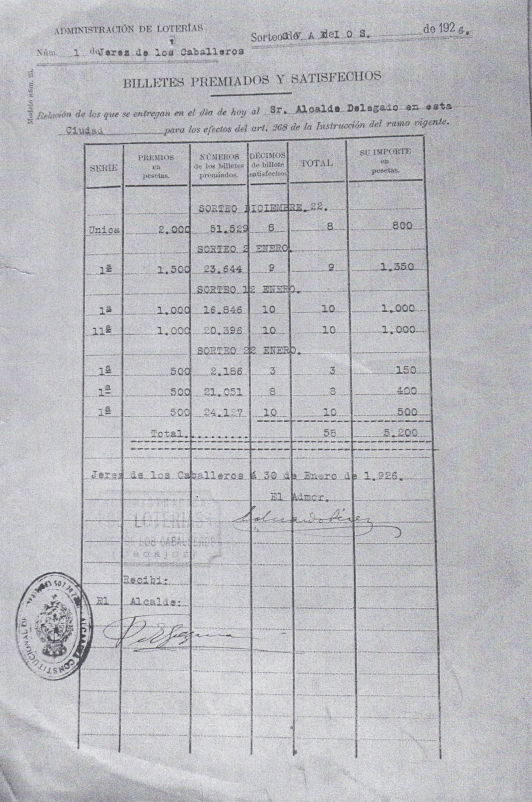 ADMINISTRACIÓN DE LOTERÍAS
Sorteo V A R I O S. de 1926.
Núm. 1 de Jerez de los Caballeros
BILLETES PREMIADOS Y SATISFECHOS
Relación de los que se entregan en el día de hoy al Sr. Alcalde Delegado en esta
Ciudad para los efectos del art. 268 de la Instrucción del ramo vigente.
SERIE PREMIOS en pesetas. NÚMEROS de los billetes premiados. DÉCIMOS de billete satisfechos. TOTAL SU IMPORTE en pesetas.
SORTEO DICIEMBRE.22.
Unica 2.000 51.529 8 8 800
SORTEO 2 ENERO.
1ª 1.500 23.644 9 9 1.350
SORTEO 12 ENERO.
1ª 1.000 16.846 10 10 1.000
11ª 1.000 20.396 10 10 1.000
SORTEO 22 ENERO.
1ª 500 2.186 3 3 150
1ª 500 21.051 8 8 400
1ª 500 24.127 10 10 500
Total.......... 58 5.200
Jerez de los Caballeros á 30 de Enero de 1.926.
El Admor.
LOTERIAS
Recibi:
El Alcalde:
ALCALDIA CONSTITUCIONAL
Modelo núm.